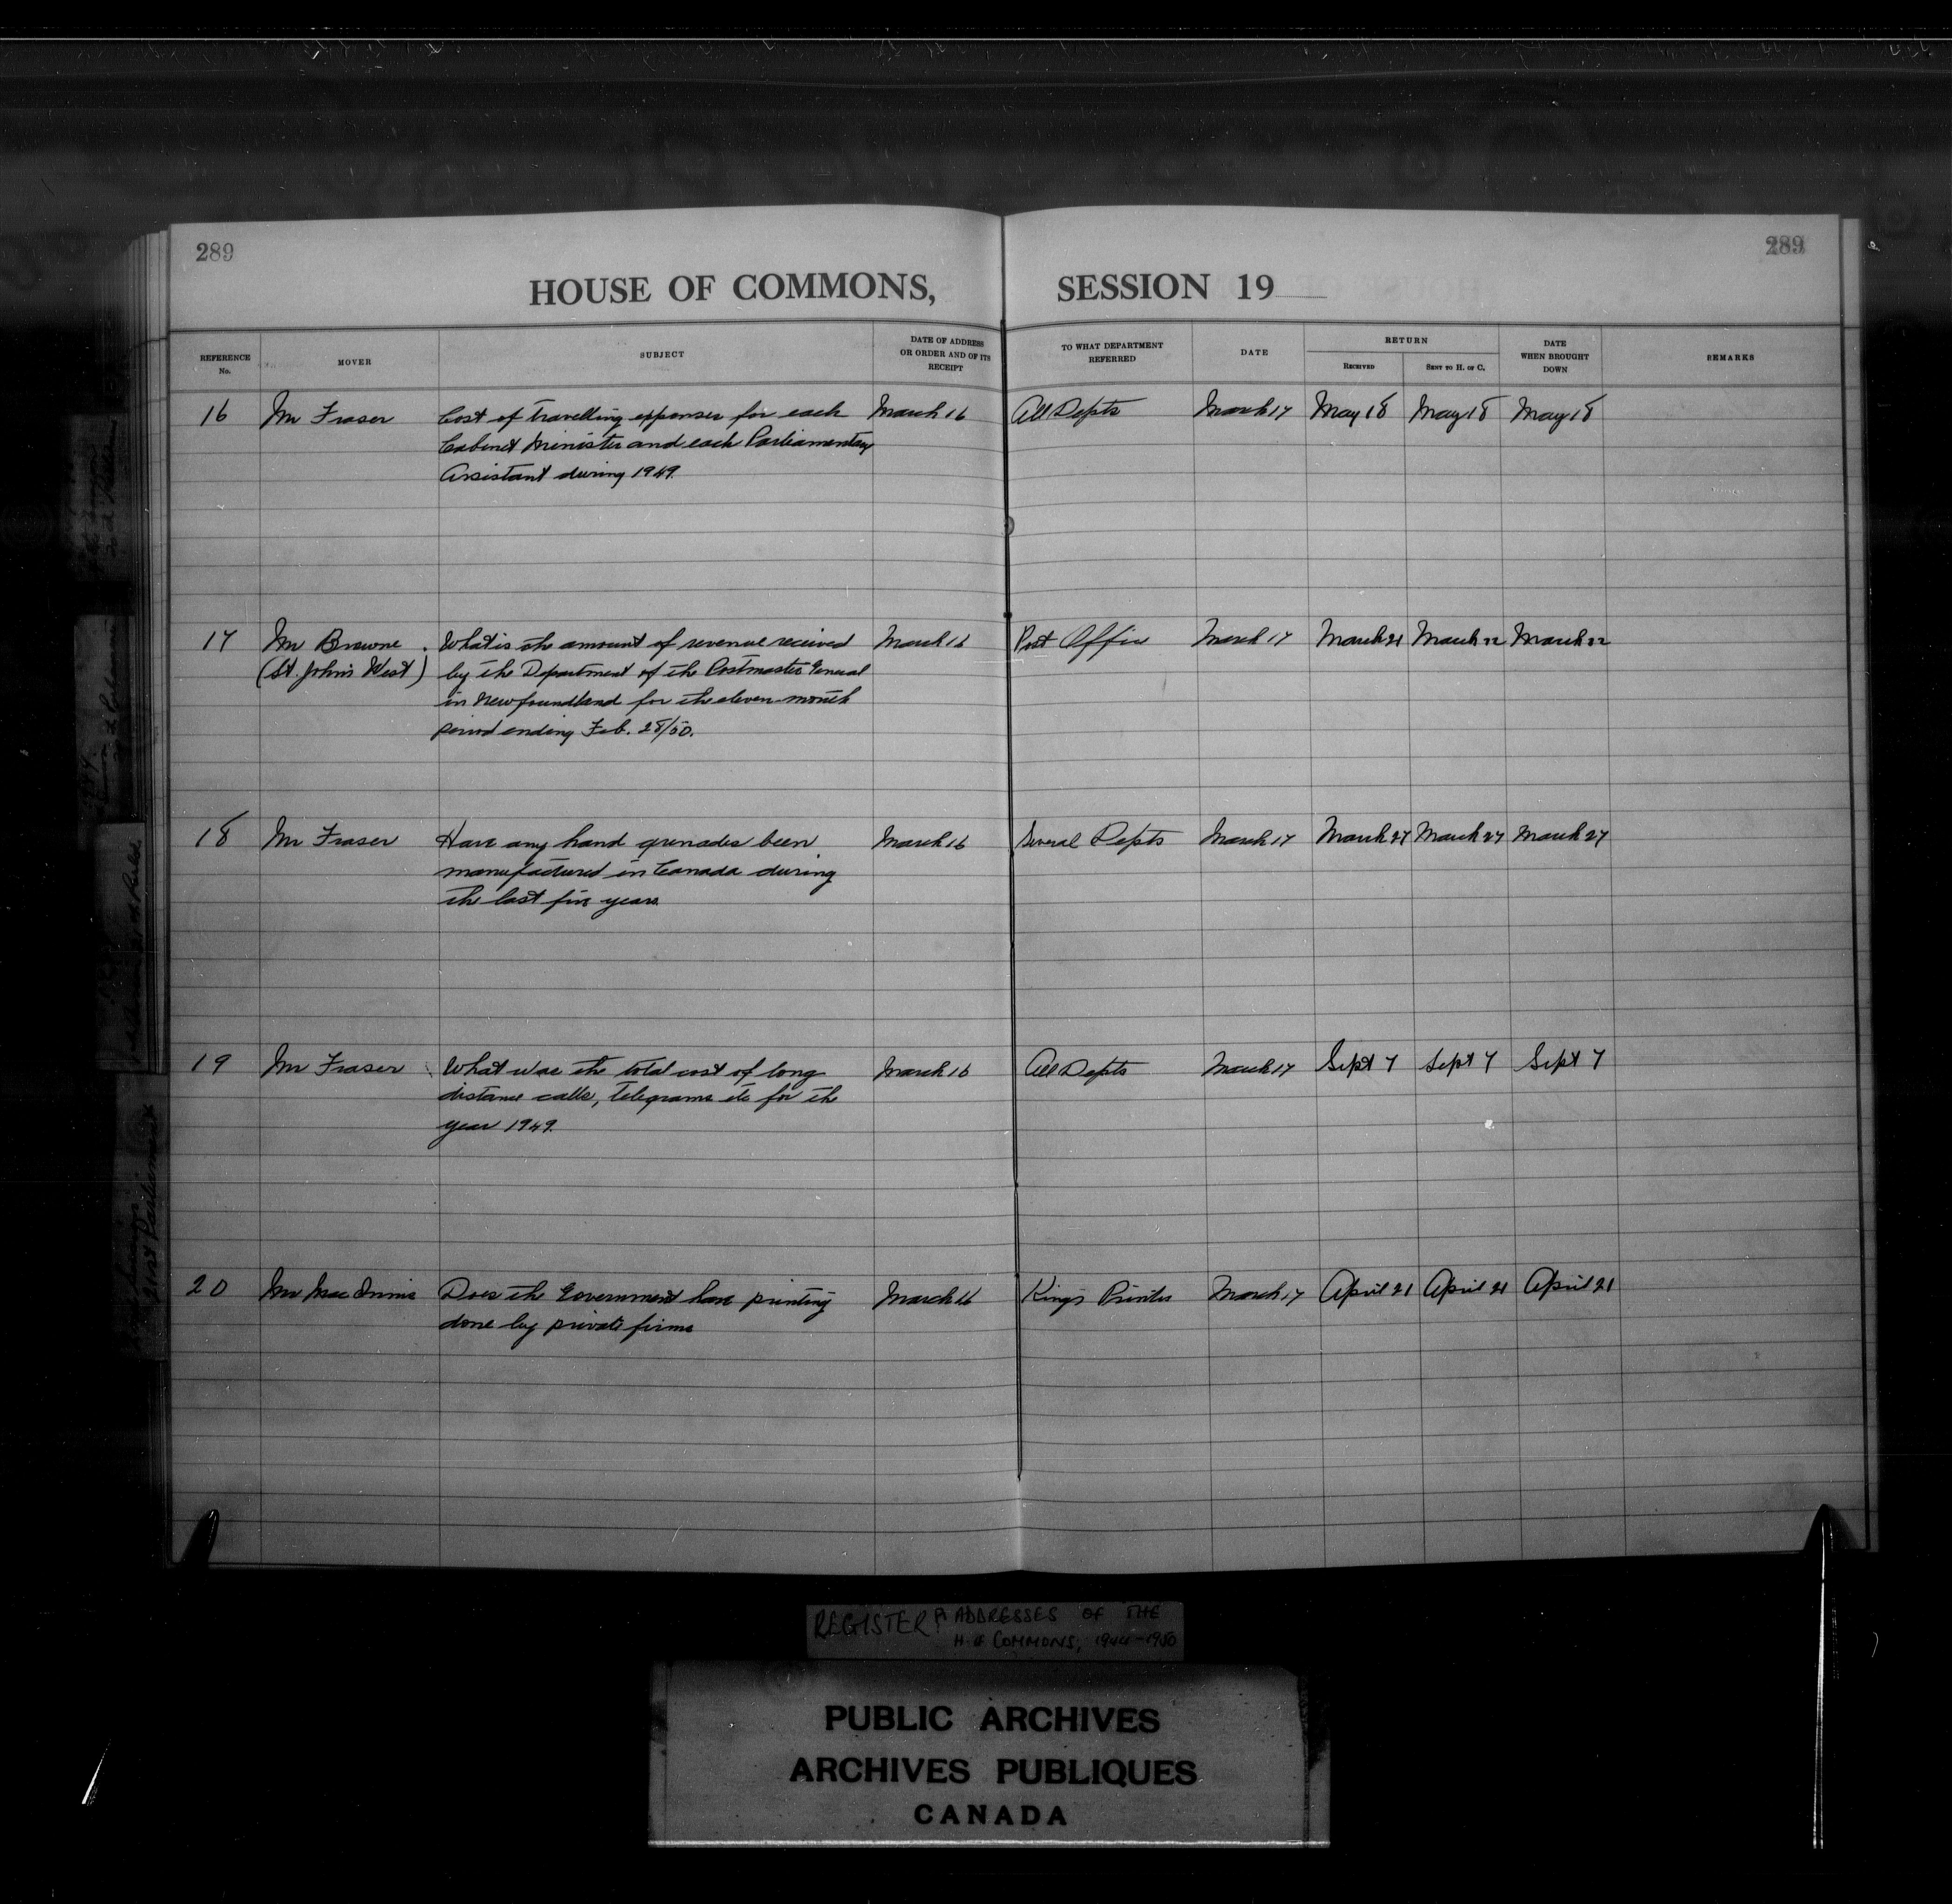 289
289
HOUSE OF COMMONS, SESSION 19
REFERENCE No.
MOVER
SUBJECT
DATE OF ADDRESS OR ORDER AND OF ITS RECEIPT
TO WHAT DEPARTMENT REFERRED
DATE
RETURN
RECEIVED
SENT TO H. OF C.
DATE WHEN BROUGHT DOWN
REMARKS
16 Mr Fraser Cost of travelling expenses for each March 16 All Depts March 17 May 18 May 18 May 18
Cabinet Minister and each Parliamentary
Assistant during 1949.
17 Mr Browne What is the amount of revenue received March 16 Post Office March 17 March 21 March 22 March 22
(St. John's West) by the Department of the Postmaster General
in Newfoundland for the eleven-month
period ending Feb. 28/50.
18 Mr Fraser Have any hand grenades been March 16 Several Depts March 17 March 27 March 27 March 27
manufactured in Canada during
the last five years.
19 Mr Fraser What was the total cost of long March 16 All Depts March 17 Sept 7 Sept 7 Sept 7
distance calls, telegrams etc for the
year 1949.
20 Mr MacInnis Does the Government have printing March 16 King's Printer March 17 April 21 April 21 April 21
done by private firms
REGISTER OF ADDRESSES OF THE
H. of COMMONS, 1944-1950
PUBLIC ARCHIVES
ARCHIVES PUBLIQUES
CANADA